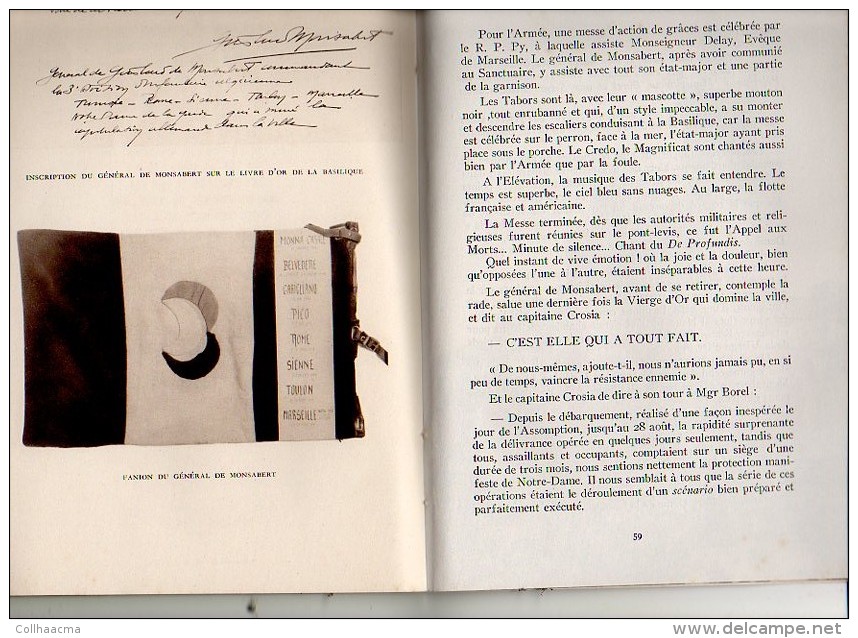 Général de Goislard de Monsabert commandant
la 3e division d'infanterie algérienne
Tunisie - Rome - Sienne - Toulon - Marseille
Notre Dame de la Garde qui a mené la
capitulation allemande dans la ville
INSCRIPTION DU GÉNÉRAL DE MONSABERT SUR LE LIVRE D'OR DE LA BASILIQUE
BELVEDERE
GARIGLIANO
PICO
ROME
SIENNE
TOULON
MARSEILLE
FANION DU GÉNÉRAL DE MONSABERT
Pour l'Armée, une messe d'action de grâces est célébrée par
le R. P. Py, à laquelle assiste Monseigneur Delay, Evêque
de Marseille. Le général de Monsabert, après avoir communié
au Sanctuaire, y assiste avec tout son état-major et une partie
de la garnison.
Les Tabors sont là, avec leur « mascotte », superbe mouton
noir ,tout enrubanné et qui, d'un style impeccable, a su monter
et descendre les escaliers conduisant à la Basilique, car la messe
est célébrée sur le perron, face à la mer, l'état-major ayant pris
place sous le porche. Le Credo, le Magnificat sont chantés aussi
bien par l'Armée que par la foule.
A l'Elévation, la musique des Tabors se fait entendre. Le
temps est superbe, le ciel bleu sans nuages. Au large, la flotte
française et américaine.
La Messe terminée, dès que les autorités militaires et reli-
gieuses furent réunies sur le pont-levis, ce fut l'Appel aux
Morts... Minute de silence... Chant du De Profundis.
Quel instant de vive émotion ! où la joie et la douleur, bien
qu'opposées l'une à l'autre, étaient inséparables à cette heure.
Le général de Monsabert, avant de se retirer, contemple la
rade, salue une dernière fois la Vierge d'Or qui domine la ville,
et dit au capitaine Crosia :
— C'EST ELLE QUI A TOUT FAIT.
« De nous-mêmes, ajoute-t-il, nous n'aurions jamais pu, en si
peu de temps, vaincre la résistance ennemie ».
Et le capitaine Crosia de dire à son tour à Mgr Borel :
— Depuis le débarquement, réalisé d'une façon inespérée le
jour de l'Assomption, jusqu'au 28 août, la rapidité surprenante
de la délivrance opérée en quelques jours seulement, tandis que
tous, assaillants et occupants, comptaient sur un siège d'une
durée de trois mois, nous sentions nettement la protection mani-
feste de Notre-Dame. Il nous semblait à tous que la série de ces
opérations étaient le déroulement d'un scénario bien préparé et
parfaitement exécuté.
59
Collhaacma
delcampe.net